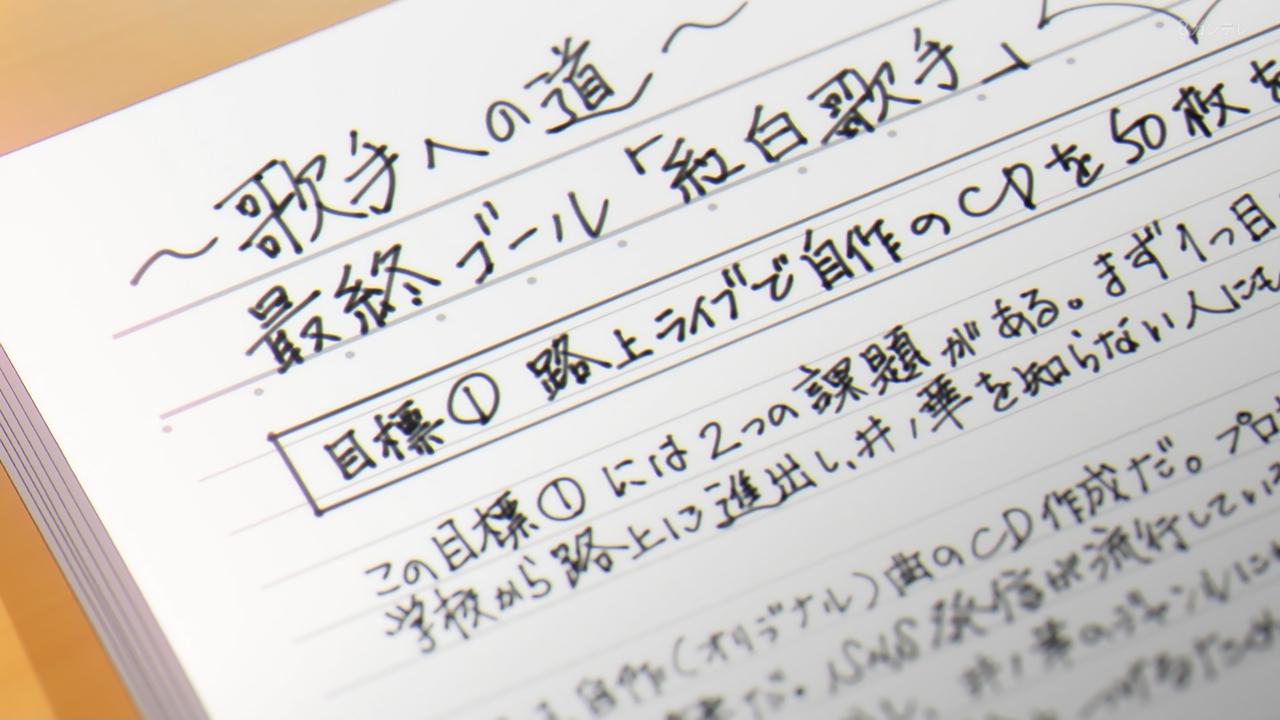 8カンテレ
～歌手への道～
最終ゴール「紅白歌手」
目標① 路上ライブで自作のCDを50枚を
この目標①には2つの課題がある。まず1つ目
学校から路上に進出し、井ノ華を知らない人にも
自作(オリジナル)曲のCD作成だ。プロ
SNS発信が流行してい
井ノ華のジャンルに